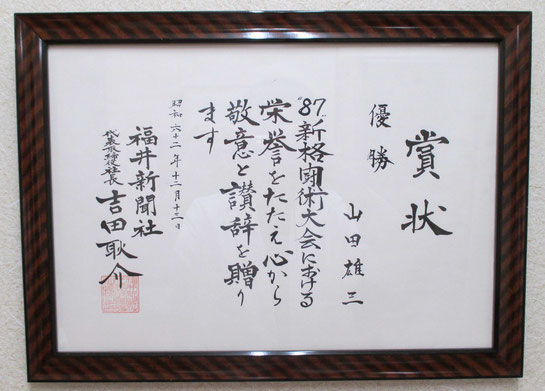 賞状
優勝
山田雄三
"87"新格闘術大会における
栄誉をたたえ心から
敬意と讃辞を贈り
ます
昭和六十二年十二月十三日
福井新聞社
代表取締役社長 吉田耿介